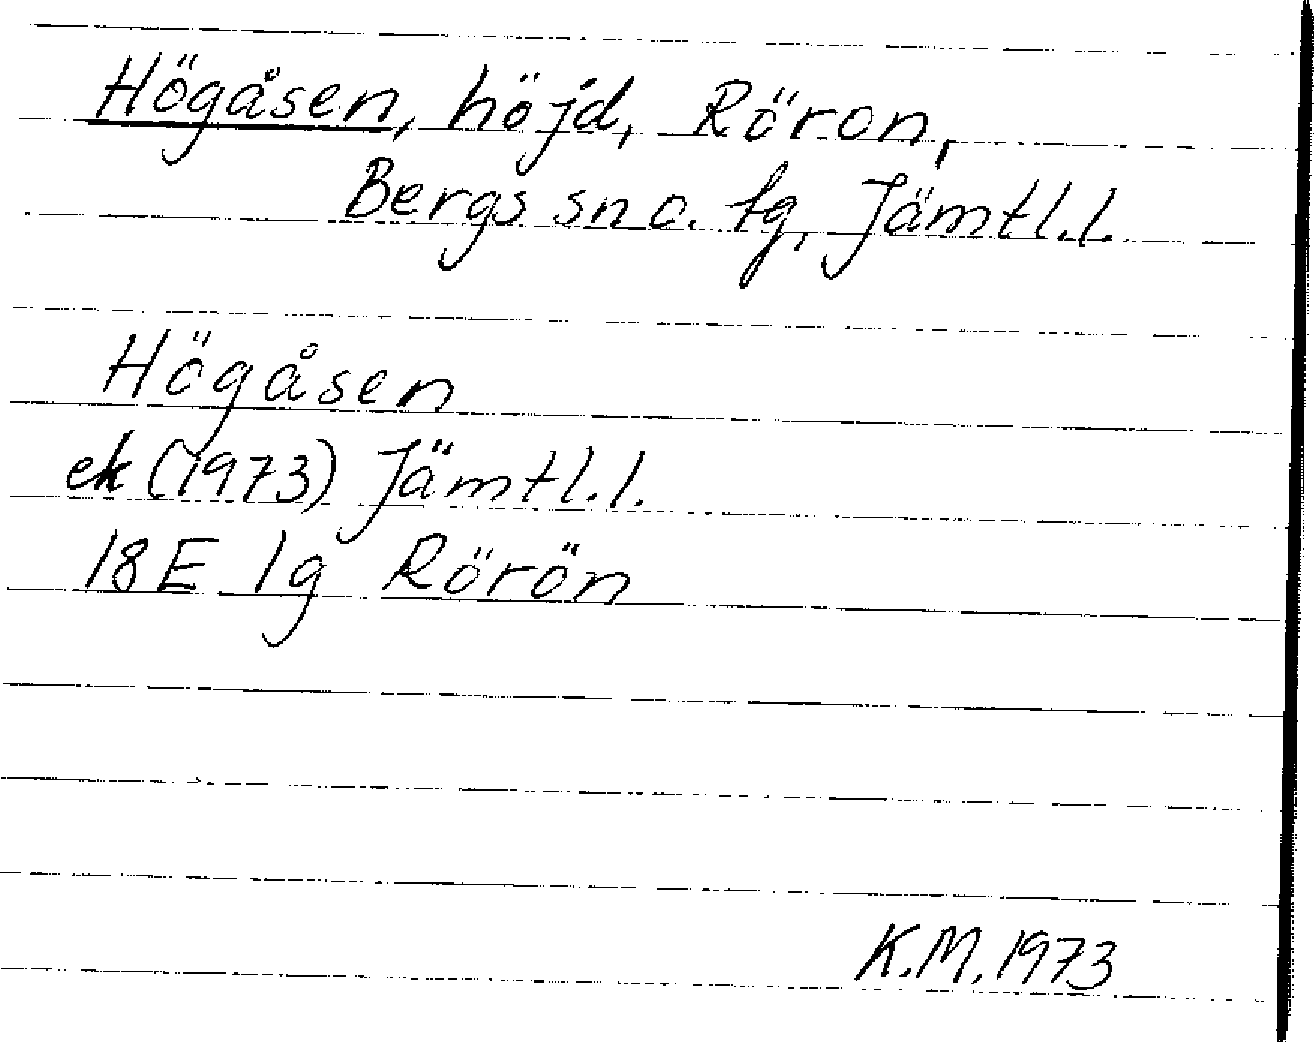 Högåsen, höjd, Röron,
Bergs sn o. tg, Jämtl.l.
Högåsen
ek (1973) Jämtl.l.
18E 1g Rörön
K.M. 1973